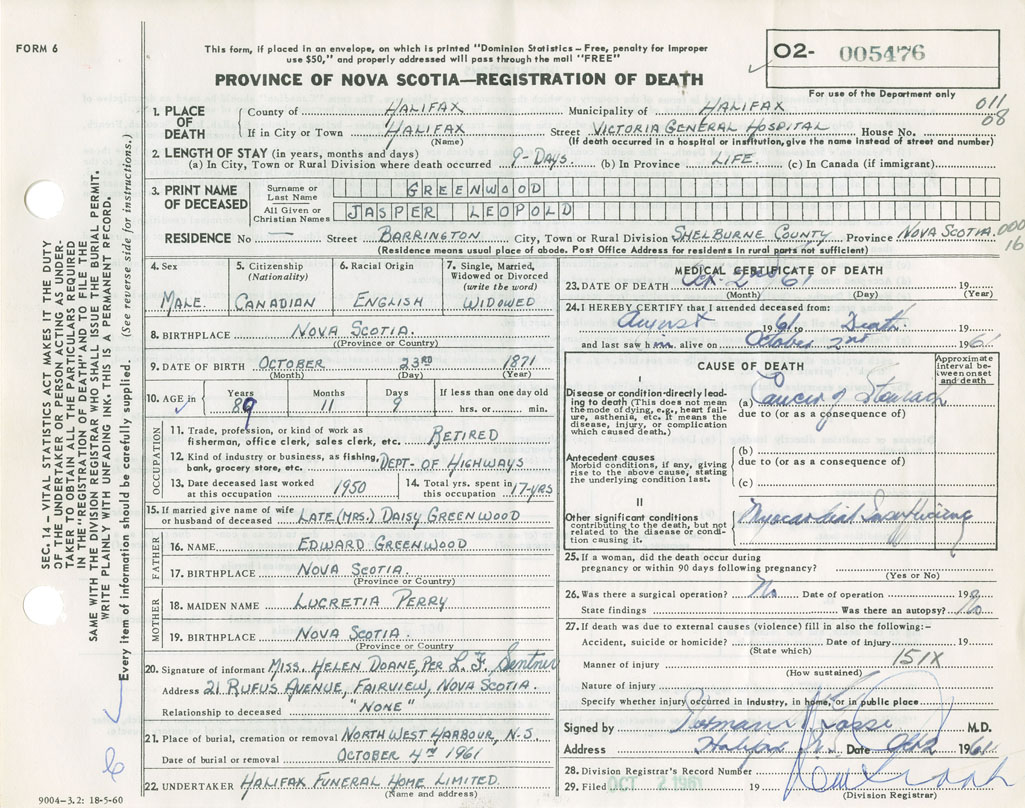 FORM 6
This form, if placed in an envelope, on which is printed "Dominion Statistics – Free, penalty for improper
use $50," and properly addressed will pass through the mail "FREE"
PROVINCE OF NOVA SCOTIA—REGISTRATION OF DEATH
02- 005476
For use of the Department only
011
08
1. PLACE OF DEATH County of HALIFAX Municipality of HALIFAX
If in City or Town HALIFAX Street VICTORIA GENERAL HOSPITAL House No.
(Name) (If death occurred in a hospital or institution, give the name instead of street and number)
2. LENGTH OF STAY (in years, months and days)
(a) In City, Town or Rural Division where death occurred 9-DAYS. (b) In Province LIFE. (c) In Canada (if immigrant)
3. PRINT NAME OF DECEASED
Surname or Last Name GREENWOOD
All Given or Christian Names JASPER LEOPOLD
RESIDENCE No — Street BARRINGTON City, Town or Rural Division SHELBURNE COUNTY Province NOVA SCOTIA. 000
16
(Residence means usual place of abode. Post Office Address for residents in rural parts not sufficient)
4. Sex MALE.
5. Citizenship (Nationality) CANADIAN
6. Racial Origin ENGLISH
7. Single, Married, Widowed or Divorced (write the word) WIDOWED
8. BIRTHPLACE NOVA SCOTIA.
(Province or Country)
9. DATE OF BIRTH OCTOBER 23RD 1871
(Month) (Day) (Year)
10. AGE in Years 89 Months 11 Days 9 If less than one day old hrs. or min.
OCCUPATION
11. Trade, profession, or kind of work as
fisherman, office clerk, sales clerk, etc. RETIRED
12. Kind of industry or business, as fishing,
bank, grocery store, etc. DEPT- OF HIGHWAYS
13. Date deceased last worked
at this occupation 1950
14. Total yrs. spent in
this occupation 17-YRS
15. If married give name of wife
or husband of deceased LATE (MRS.) DAISY GREENWOOD
FATHER
16. NAME EDWARD GREENWOOD
17. BIRTHPLACE NOVA SCOTIA.
(Province or Country)
MOTHER
18. MAIDEN NAME LUCRETIA PERRY
19. BIRTHPLACE NOVA SCOTIA.
(Province or Country
20. Signature of informant MISS. HELEN DOANE, PER L. F. Sentner
Address 21 RUFUS AVENUE, FAIRVIEW, NOVA SCOTIA.
Relationship to deceased "NONE"
21. Place of burial, cremation or removal NORTH WEST HARBOUR, N.S.
Date of burial or removal OCTOBER 4TH 1961
22. UNDERTAKER HALIFAX FUNERAL HOME LIMITED.
(Name and address)
9004-3.2: 18-5-60
MEDICAL CERTIFICATE OF DEATH
23. DATE OF DEATH Oct. 2nd 61 19
(Month) (Day) (Year)
24. I HEREBY CERTIFY that I attended deceased from:
August 1961 to Death. 19
and last saw him alive on October 2nd 1961
CAUSE OF DEATH
Approximate interval between onset and death
I
Disease or condition directly leading to death (This does not mean the mode of dying, e.g., heart failure, asthenia, etc. It means the disease, injury, or complication which caused death.)
(a) Cancer of Stomach
due to (or as a consequence of)
Antecedent causes
Morbid conditions, if any, giving rise to the above cause, stating the underlying condition last.
(b)
due to (or as a consequence of)
(c)
II
Other significant conditions
contributing to the death, but not related to the disease or condition causing it.
Myocardial Insufficiency
25. If a woman, did the death occur during
pregnancy or within 90 days following pregnancy?
(Yes or No)
26. Was there a surgical operation? No Date of operation 19
State findings Was there an autopsy? No
27. If death was due to external causes (violence) fill in also the following:–
Accident, suicide or homicide? Date of injury 19
(State which)
Manner of injury 151X
(How sustained)
Nature of injury
Specify whether injury occurred in industry, in home, or in public place
Signed by M.D.
Address Halifax N.S. Date Oct 2 1961
28. Division Registrar's Record Number
29. Filed OCT 2 1961 19
(Division Registrar)
SEC. 14 – VITAL STATISTICS ACT MAKES IT THE DUTY
OF THE UNDERTAKER OR PERSON ACTING AS UNDER-
TAKER TO OBTAIN ALL THE PARTICULARS REQUIRED
IN THE "REGISTRATION OF DEATH" AND TO FILE THE
SAME WITH THE DIVISION REGISTRAR WHO SHALL ISSUE THE BURIAL PERMIT.
WRITE PLAINLY WITH UNFADING INK. THIS IS A PERMANENT RECORD.
Every item of information should be carefully supplied. (See reverse side for instructions.)